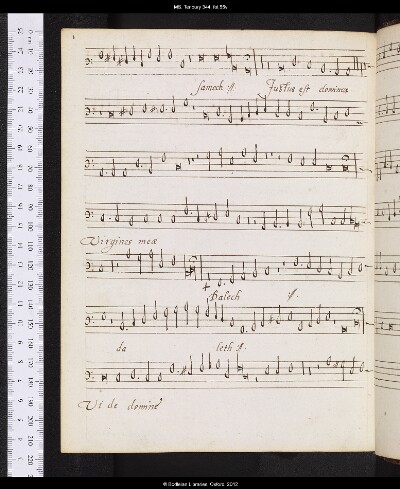 MS. Tenbury 944, fol. 55v
Samech :// Justus est dominus
Virgines meæ
Daloch ://.
da leth ://.
Vi de domine
© Bodleian Libraries, Oxford, 2012